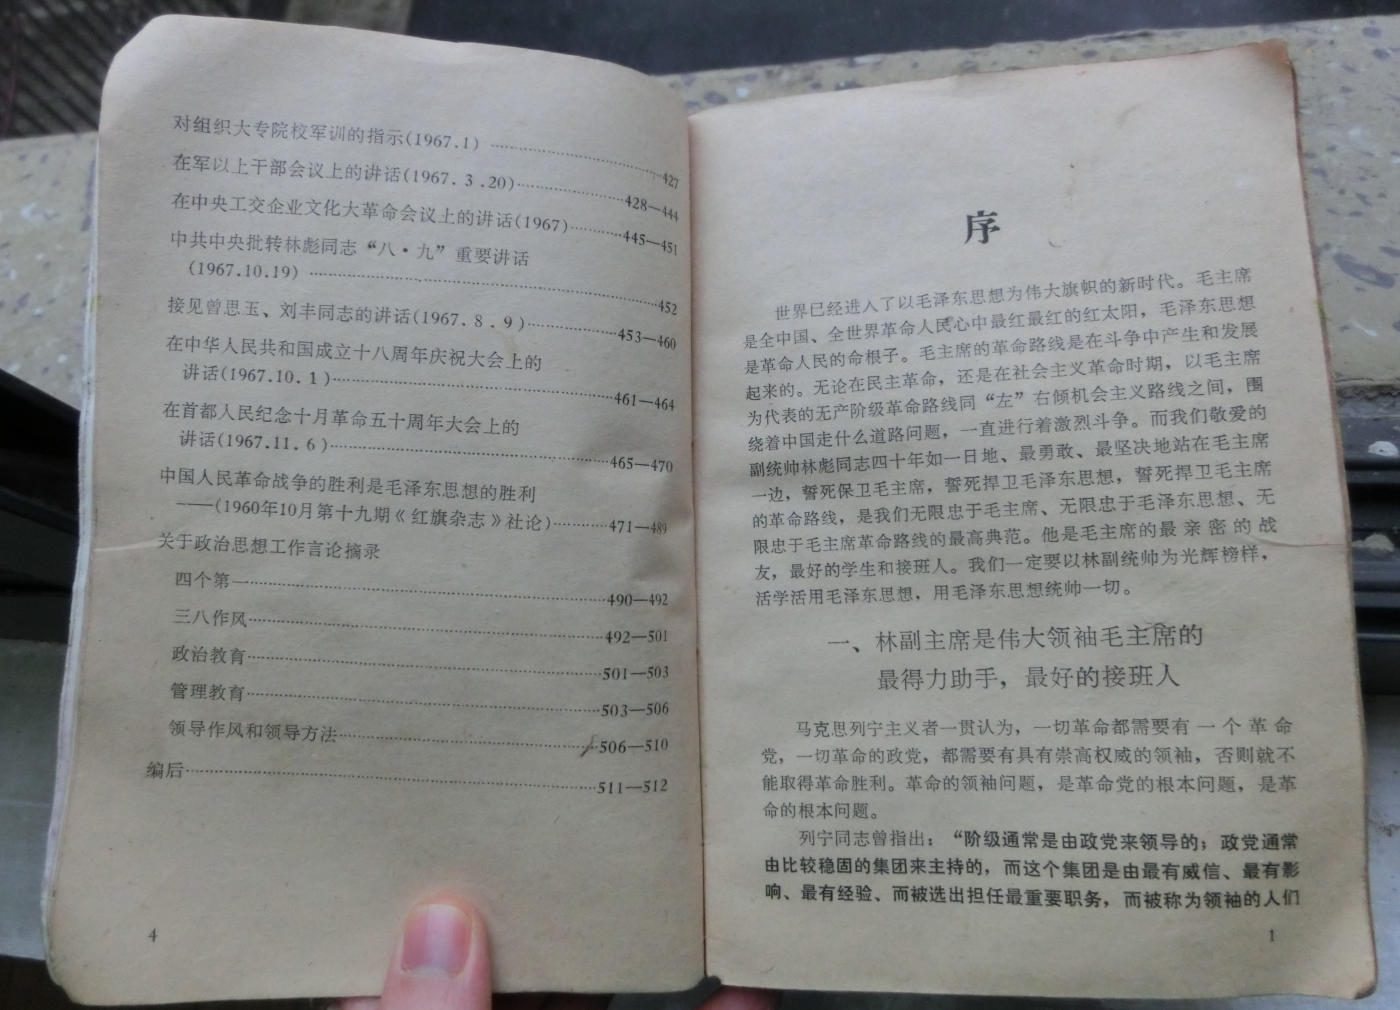 对组织大专院校军训的指示(1967.1)……………427
在军以上干部会议上的讲话(1967.3.20)……………428—444
在中央工交企业文化大革命会议上的讲话(1967)………445—451
中共中央批转林彪同志“八·九”重要讲话
(1967.10.19)……………………………452
接见曾思玉、刘丰同志的讲话(1967.8.9)……………453—460
在中华人民共和国成立十八周年庆祝大会上的
讲话(1967.10.1)……………………………461—464
在首都人民纪念十月革命五十周年大会上的
讲话(1967.11.6)……………………………465—470
中国人民革命战争的胜利是毛泽东思想的胜利
——(1960年10月第十九期《红旗杂志》社论)………471—489
关于政治思想工作言论摘录
四个第一……………………………490—492
三八作风……………………………492—501
政治教育……………………………501—503
管理教育……………………………503—506
领导作风和领导方法……………………………506—510
编后……………………………511—512
4
序
世界已经进入了以毛泽东思想为伟大旗帜的新时代。毛主席
是全中国、全世界革命人民心中最红最红的红太阳，毛泽东思想
是革命人民的命根子。毛主席的革命路线是在斗争中产生和发展
起来的。无论在民主革命，还是在社会主义革命时期，以毛主席
为代表的无产阶级革命路线同“左”右倾机会主义路线之间，围
绕着中国走什么道路问题，一直进行着激烈斗争。而我们敬爱的
副统帅林彪同志四十年如一日地、最勇敢、最坚决地站在毛主席
一边，誓死保卫毛主席，誓死捍卫毛泽东思想，誓死捍卫毛主席
的革命路线，是我们无限忠于毛主席、无限忠于毛泽东思想、无
限忠于毛主席革命路线的最高典范。他是毛主席的最亲密的战
友，最好的学生和接班人。我们一定要以林副统帅为光辉榜样，
活学活用毛泽东思想，用毛泽东思想统帅一切。
一、林副主席是伟大领袖毛主席的
最得力助手，最好的接班人
马克思列宁主义者一贯认为，一切革命都需要有一个革命
党，一切革命的政党，都需要有具有崇高权威的领袖，否则就不
能取得革命胜利。革命的领袖问题，是革命党的根本问题，是革
命的根本问题。
列宁同志曾指出：“阶级通常是由政党来领导的；政党通常
由比较稳固的集团来主持的，而这个集团是由最有威信、最有影
响、最有经验、而被选出担任最重要职务，而被称为领袖的人们
1